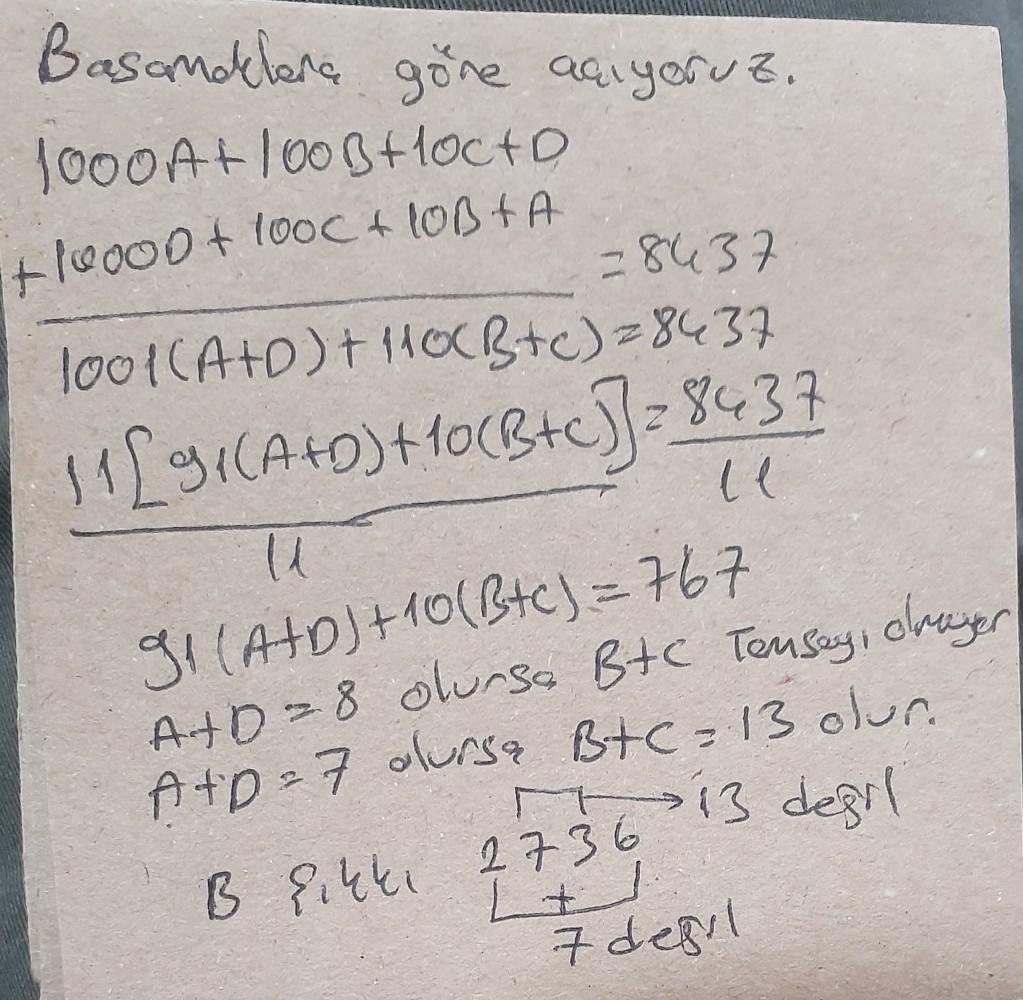 Basamaklara göre açıyoruz.
1000A+100B+10C+D
+1000D+100C+10B+A
=8437
1001(A+D)+110(B+C)=8437
11[91(A+D)+10(B+C)]=8437
11 11
91(A+D)+10(B+C)=767
A+D=8 olursa B+C Tamsayı olmuyor
A+D=7 olursa B+C=13 olur.
→13 değil
B şıkkı 2736
+
7 değil